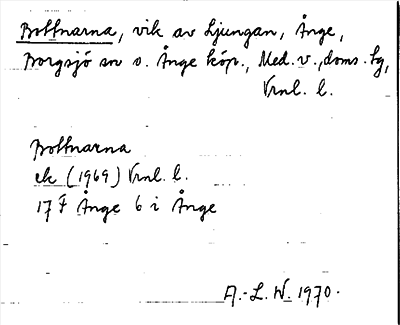 Bottnarna, vik av Ljungan, Ånge,
Borgsjö sn o. Ånge köp., Med. v., doms. sg,
Vrnl. l.
Bottnarna
ek (1969) Vrnl. l.
17 F Ånge 6 i Ånge
A.-L. W. 1970.